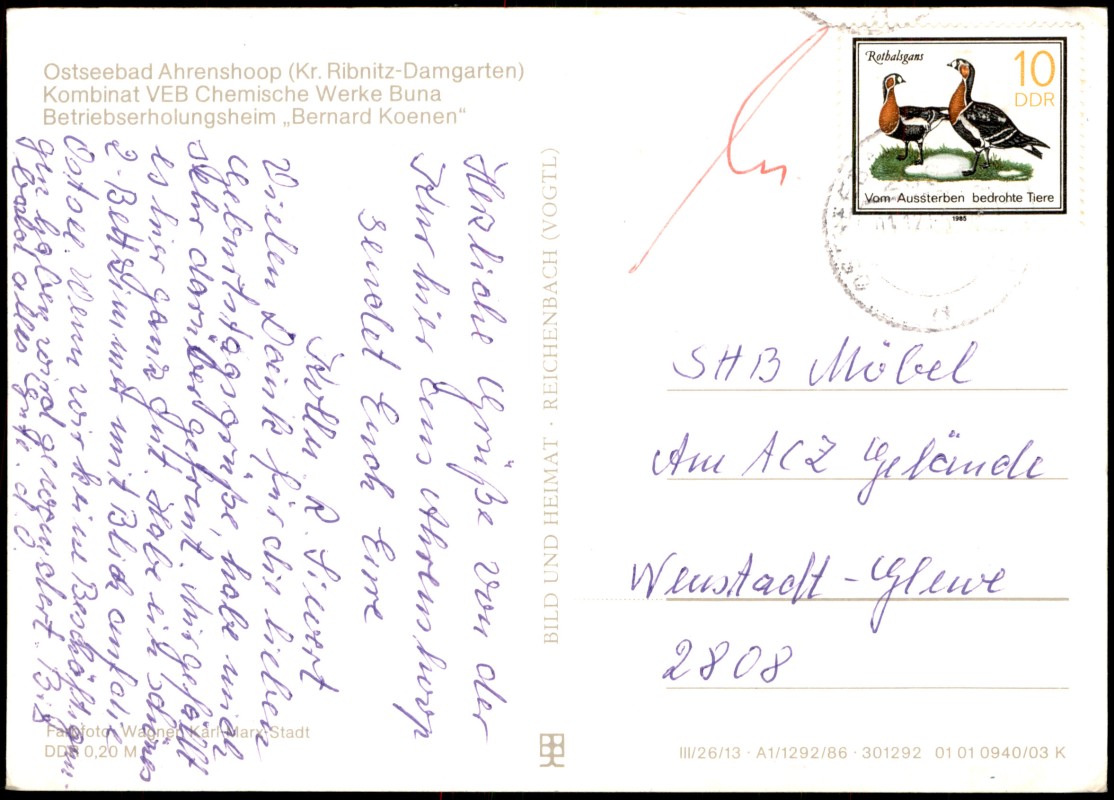 Ostseebad Ahrenshoop (Kr. Ribnitz-Damgarten)
Kombinat VEB Chemische Werke Buna
Betriebserholungsheim „Bernard Koenen"
Herzliche Grüße von der
Kur hier aus Ahrenshoop
sendet Euch Eure
Kolln R. Sievert
Vielen Dank für die lieben
Geburtstagsgrüße, habe mich
sehr darüber gefreut. Mir gefällt
es hier ganz gut. Habe ein schönes
2-Bettzimmer mit Blick auf die
Ostsee. Wenn wir keine Beschäftigun-
gen haben wird gewandert. Bis
bald alles Gute. d. O.
Farbfoto: Wagner, Karl-Marx-Stadt
DDR 0,20 M
BILD UND HEIMAT · REICHENBACH (VOGTL)
Rothalsgans
10
DDR
Vom Aussterben bedrohte Tiere
1985
SHB Möbel
Am ACZ Gelände
Neustadt-Glewe
2808
III/26/13 · A1/1292/86 · 301292 01 01 0940/03 K